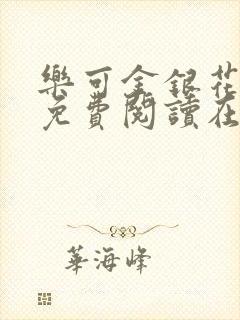 樂可金銀花
免費閱讀在
華海峰